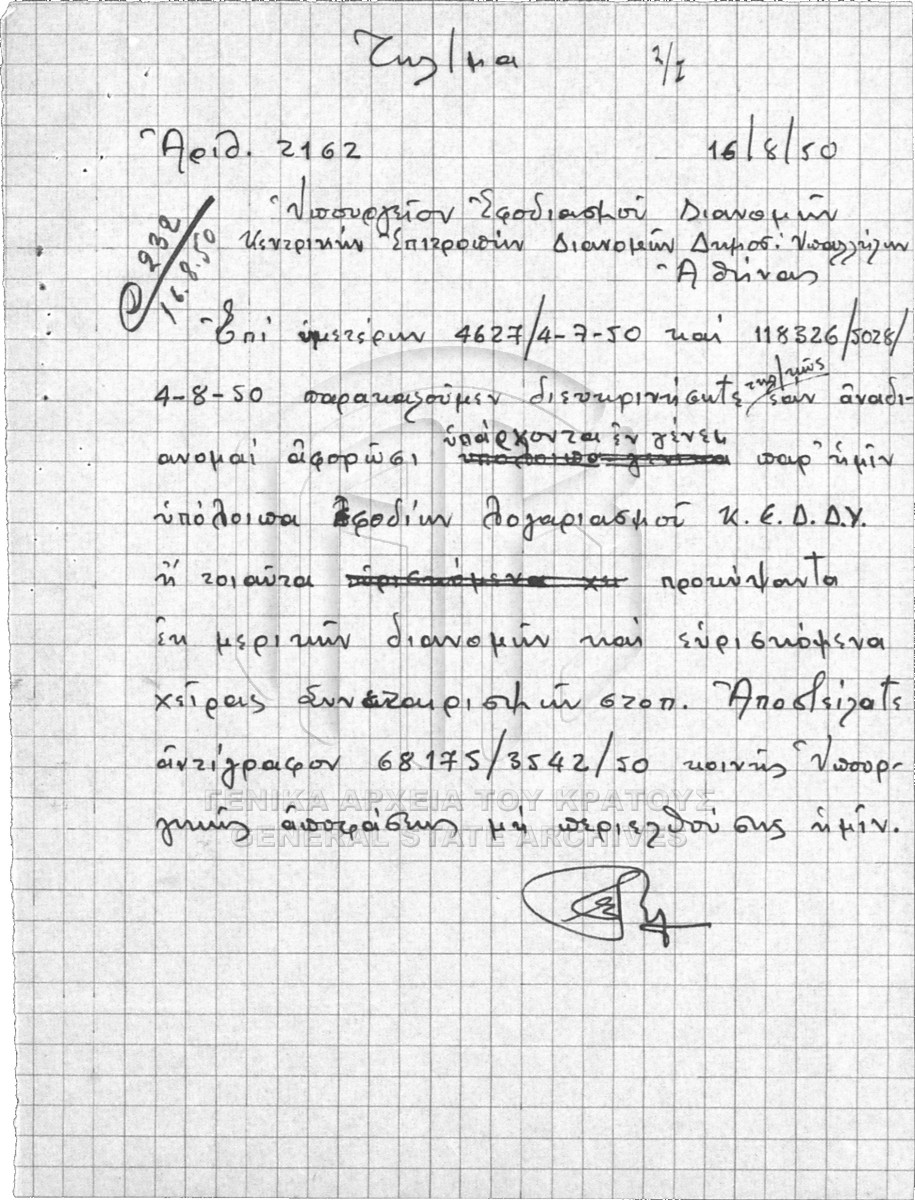 Τηλ/μα 2/I
Ἀριθ. 2162 16/8/50
232
16.8.50
Ὑπουργεῖον Ἐφοδιασμοῦ Διανομῶν
Κεντρικὴν Ἐπιτροπὴν Διανομῶν Δημοσ. Ὑπαλλήλων
Ἀθήνας
Ἐπί ὑμετέρων 4627/4-7-50 καί 118326/5028/
4-8-50 παρακαλοῦμεν διευκρινήσητε τηλ/κῶς ἐάν ἀναδι-
ανομαί ἀφορῶσι ὑπάρχοντα ἐν γένει παρ' ἡμῖν
ὑπόλοιπα ἐφοδίων λογαριασμοῦ Κ.Ε.Δ.Δ.Υ.
ἤ τοιαῦτα εὑρισκόμενα χει προκύψαντα
ἐκ μερικῶν διανομῶν καί εὑρισκόμενα
χεῖρας συνεταιρισμῶν στοπ. Ἀποστείλατε
ἀντίγραφον 68175/3542/50 κοινῆς Ὑπουρ-
γικῆς ἀποφάσεως μή περιελθούσης ἡμῖν.
ΓΕΝΙΚΑ ΑΡΧΕΙΑ ΤΟΥ ΚΡΑΤΟΥΣ
GENERAL STATE ARCHIVES